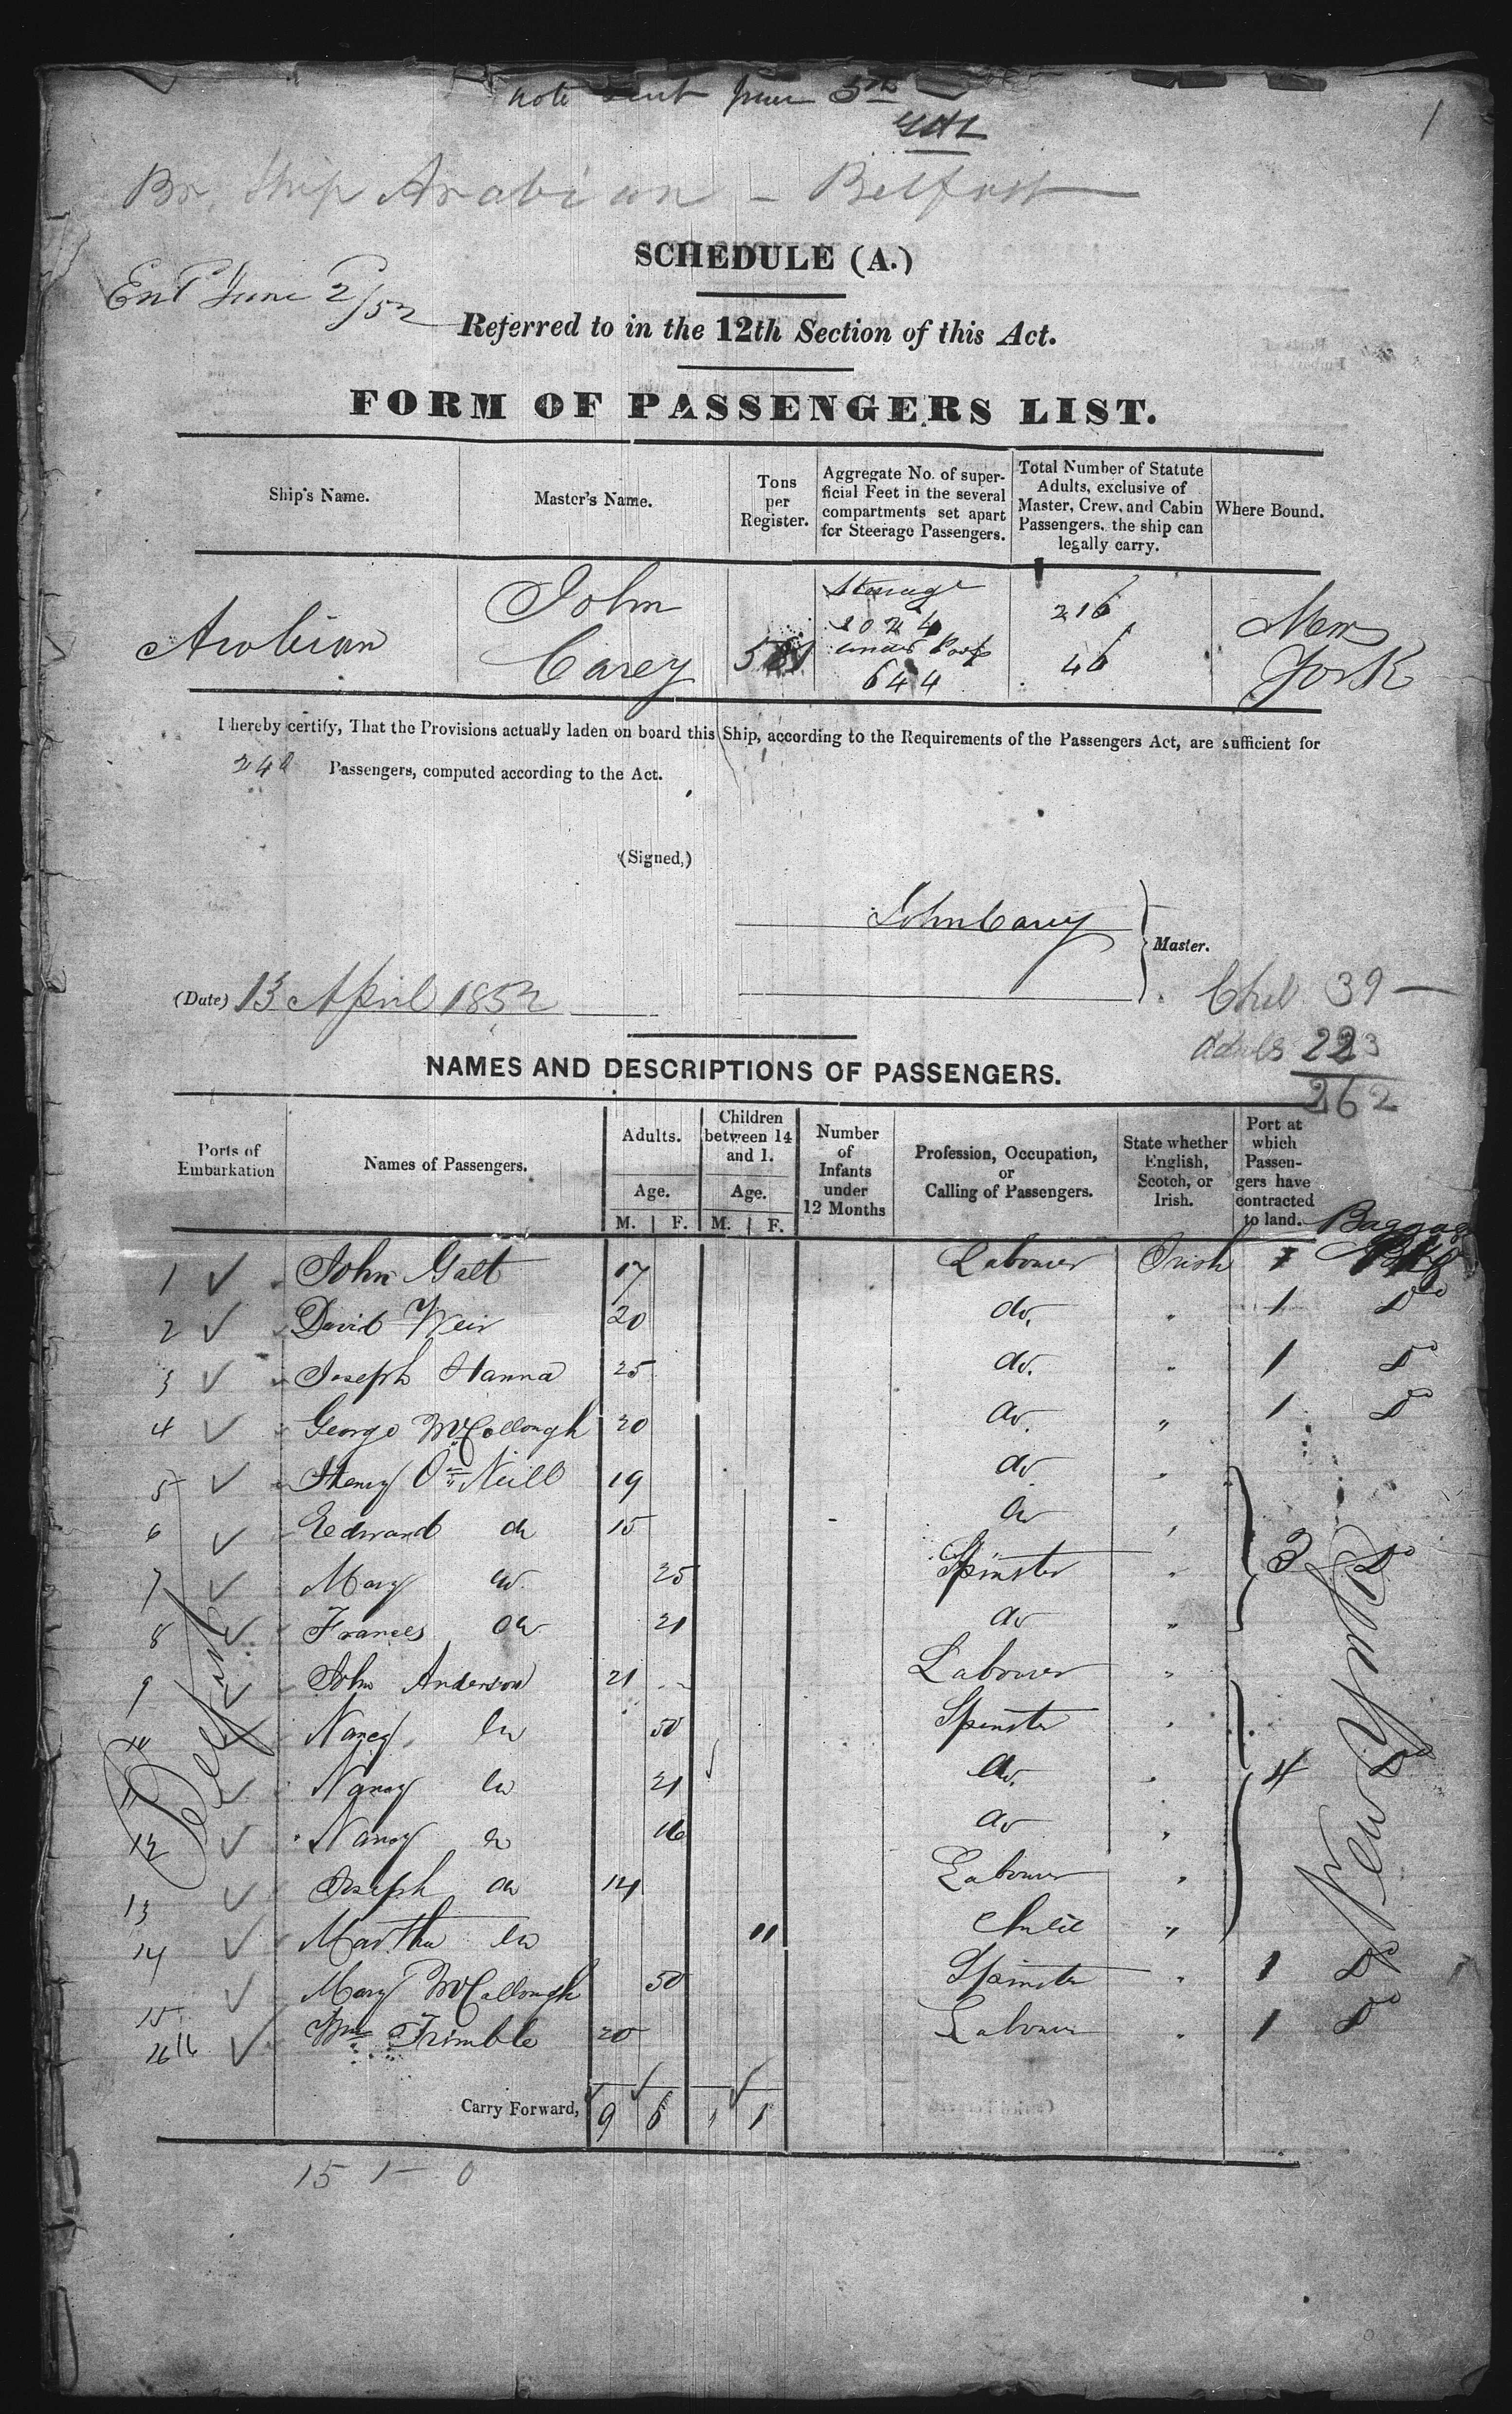 note sent June 5th
1
Br. Ship Arabian - Belfast
SCHEDULE (A.)
Ent June 2/52
Referred to in the 12th Section of this Act.
FORM OF PASSENGERS LIST.
Ship's Name. Master's Name. Tons per Register. Aggregate No. of superficial Feet in the several compartments set apart for Steerage Passengers. Total Number of Statute Adults, exclusive of Master, Crew, and Cabin Passengers, the ship can legally carry. Where Bound.
Arabian John Carey Steerage 2024 under Poop 644 216 46 New York
I hereby certify, That the Provisions actually laden on board this Ship, according to the Requirements of the Passengers Act, are sufficient for
Passengers, computed according to the Act.
(Signed,)
John Carey
Master.
(Date) 13 April 1852
Chil 39
Adults 223
262
NAMES AND DESCRIPTIONS OF PASSENGERS.
Ports of Embarkation Names of Passengers. Adults. Age. M. F. Children between 14 and 1. Age. M. F. Number of Infants under 12 Months Profession, Occupation, or Calling of Passengers. State whether English, Scotch, or Irish. Port at which Passengers have contracted to land. Baggage
Belfast
New York
1 John Galt 17 Labourer Irish 1
2 David Weir 20 do. " 1 Do
3 Joseph Hanna 25 do. " 1 Do
4 George McCollough 20 do. " 1 Do
5 Henry O"Neill 19 do "
6 Edward do 15 do "
7 Mary do. 25 Spinster " 3 Do
8 Frances do 21 do "
9 John Anderson 21 Labourer "
10 Nancy do 50 Spinster "
11 Nancy do 21 do. " 4 Do
12 Nancy do 16 do "
13 Joseph do 14 Labourer "
14 Martha do 11 Child "
15 Mary McCollough 50 Spinster " 1 Do
16 Wm Trimble 20 Labourer " 1 Do
Carry Forward, 9 6 1
15 1 - 0